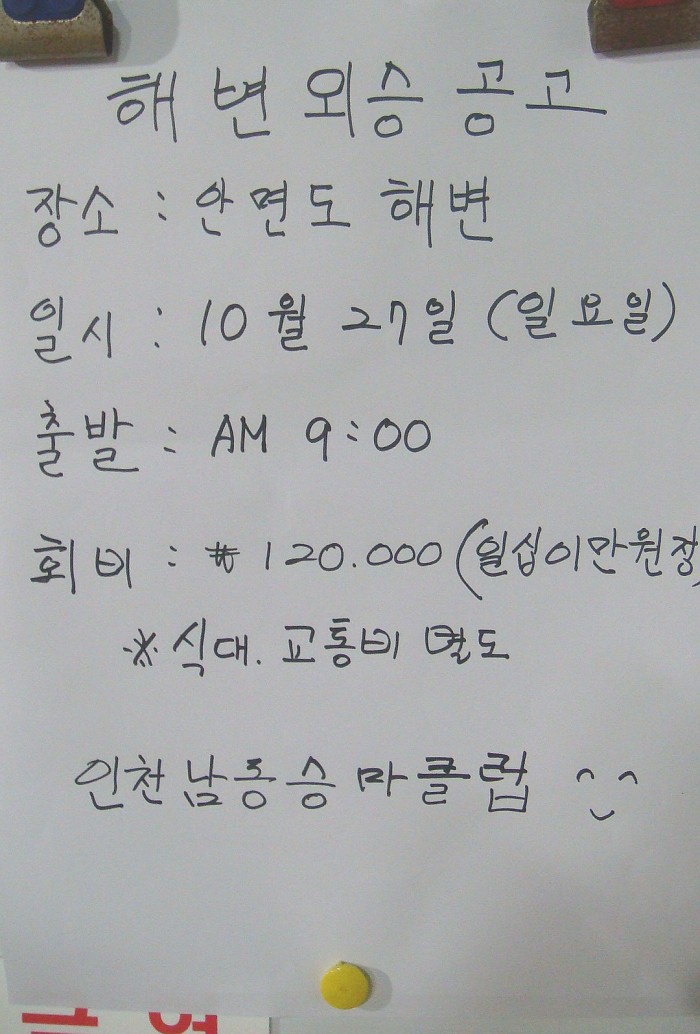 해변 외승 공고
장소 : 안면도 해변
일시 : 10월 27일 (일요일)
출발 : AM 9:00
회비 : ₩ 120.000 (일십이만원정
※ 식대. 교통비 별도
인천남동승마클럽